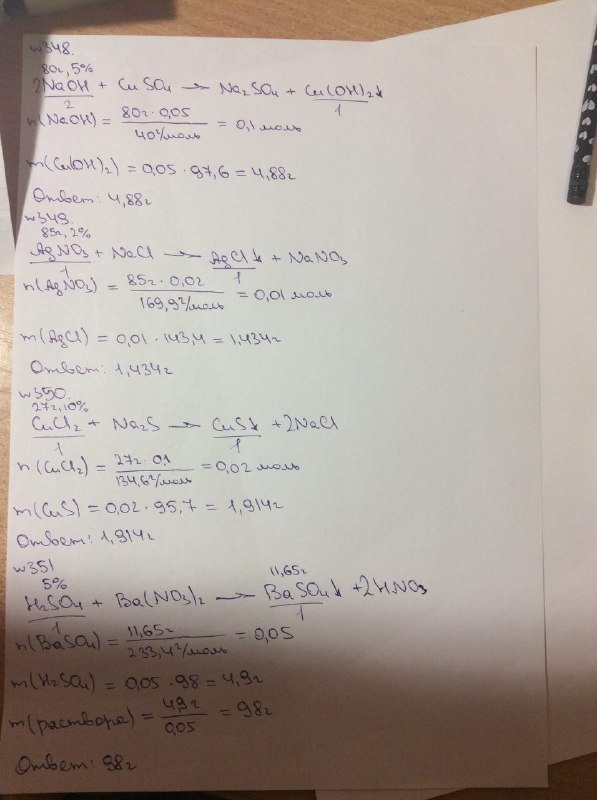 №348.
80г, 5%
2NaOH + CuSO4 → Na2SO4 + Cu(OH)2↓
2 1
n(NaOH) = 80г · 0,05 / 40г/моль = 0,1 моль
m(Cu(OH)2) = 0,05 · 97,6 = 4,88г
Ответ: 4,88г
№349.
85г, 2%
AgNO3 + NaCl → AgCl↓ + NaNO3
1 1
n(AgNO3) = 85г · 0,02 / 169,9г/моль = 0,01 моль
m(AgCl) = 0,01 · 143,4 = 1,434г
Ответ: 1,434г
№350.
27г, 10%
CuCl2 + Na2S → CuS↓ + 2NaCl
1 1
n(CuCl2) = 27г · 0,1 / 134,6г/моль = 0,02 моль
m(CuS) = 0,02 · 95,7 = 1,914г
Ответ: 1,914г
№351
5% 11,65г
H2SO4 + Ba(NO3)2 → BaSO4↓ + 2HNO3
1 1
n(BaSO4) = 11,65г / 233,4г/моль = 0,05
m(H2SO4) = 0,05 · 98 = 4,9г
m(раствора) = 4,9г / 0,05 = 98г
Ответ: 98г